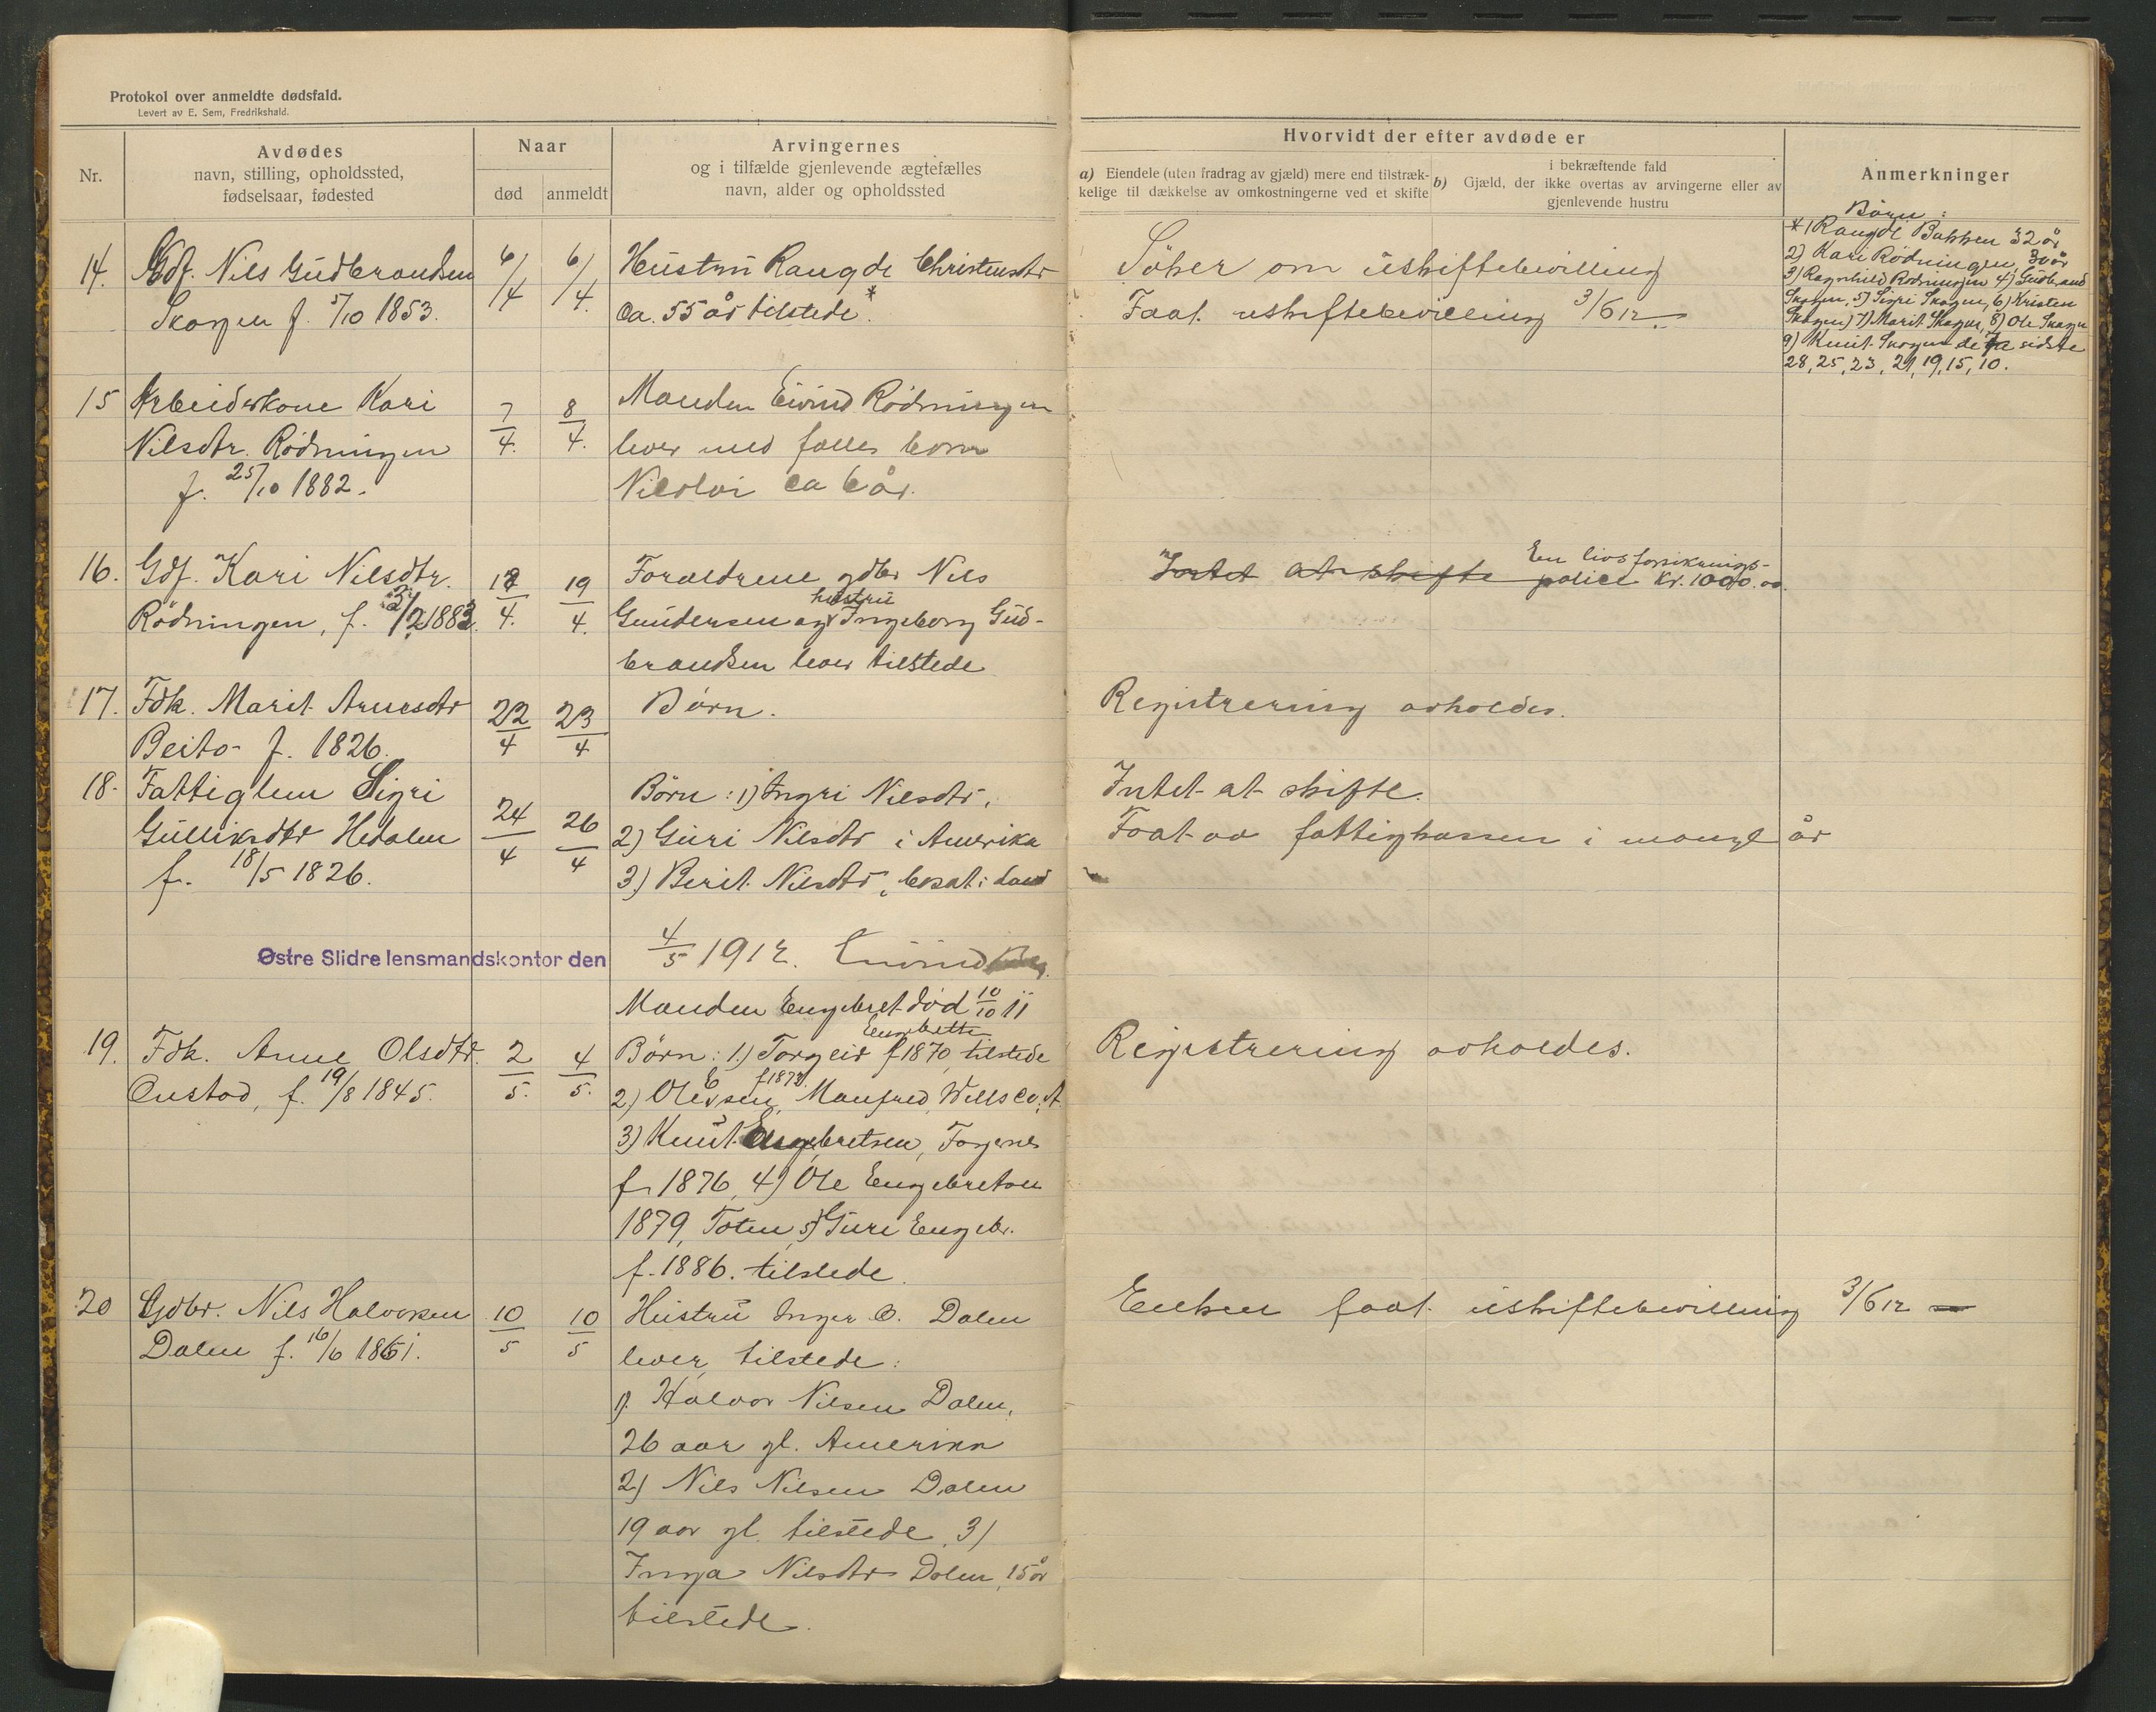 Protokol over anmeldte dødsfald.
Levert av E. Sem, Fredrikshald.
Nr.
Avdødes
navn, stilling, opholdssted,
fødselsaar, fødested
Naar
død
anmeldt
Arvingernes
og i tilfælde gjenlevende ægtefælles
navn, alder og opholdssted
Hvorvidt der efter avdøde er
a) Eiendele (uten fradrag av gjæld) mere end tilstræk-
kelige til dækkelse av omkostningerne ved et skifte
i bekræftende fald
b) Gjæld, der ikke overtas av arvingerne eller av
gjenlevende hustru
Anmerkninger
14. Gdf. Nils Gudbrandsen
Skogen f. 5/10 1853.
6/4
6/4.
Hustru Rangdi Christensdtr
ca. 55 år tilstede.*
Söker om uskiftebevilling
Faat uskiftebevilling 3/6 12.
Börn:
*1) Rangdi Bakken 32 år
2) Kari Rödningen, 30 år
3) Ragnhild Rödningen 4) Gudbrand
Skogen, 5) Sigri Skogen, 6) Kristen
Skogen, 7) Marit Skogen, 8) Ole Skogen
9) Knut Skogen de sidste
28, 25, 23, 21, 19, 15, 10.
15 Arbeiderkone Kari
Nilsdtr. Rødningen
f. 25/10 1882.
7/4.
8/4.
Manden Eivind Rødningen
lever med fælles barn
Nicolai ca 6 år.
16. Gdf. Kari Nilsdtr.
Rödningen, f. 2/2 1883.
18/4.
19/4.
Foraldrene gdbr Nils
hustru
Gundersen og Ingeborg Gud-
brandsen lever tilstede
Intet at skifte
En livsforsiknings-
police Kr. 1000.00
17. Fdk. Marit Arnesdtr
Beito f. 1826.
22/4
23/4
Børn.
Registrering avholdes.
18. Fattiglem Sigri
Gulliksdtr Hedalen
f. 18/5 1826.
24/4
26/4
Børn: 1) Ingri Nilsdtr,
2) Guri Nilsdtr i Amerika
3) Berit Nilsdtr, bosat i Land
Intet at skifte.
Faat av fattigkassen i mange år
Østre Slidre lensmandskontor den 4/5 1912. Eivind
Manden Engebret död 10/10 11
19. Fdk. Anne Olsdtr.
Onstad, f. 19/8 1845.
2/5.
4/5.
Engebrets
Börn: 1.) Torgeir f 1870, tilstede
f 1873.
2) Ole E sen, Manfred, Wells Co, A.
3) Knut Engebretsen, Fagernes
f 1876, 4) Ole Engebretsen
1879, Toten, 5) Guri Engebr.
f. 1886. tilstede.
Registrering avholdes.
20 Gdbr. Nils Halvorsen
Dalen f. 16/6 1861.
10/5
10/5
Hustru Inger O. Dalen
lever tilstede:
1). Halvor Nilsen Dalen,
26 aar gl. Amerika
2) Nils Nilsen Dalen
19 aar gl. tilstede. 3)
Inga Nilsdtr Dalen, 15 år
tilstede.
Enken faat uskiftebevilling 3/6 12